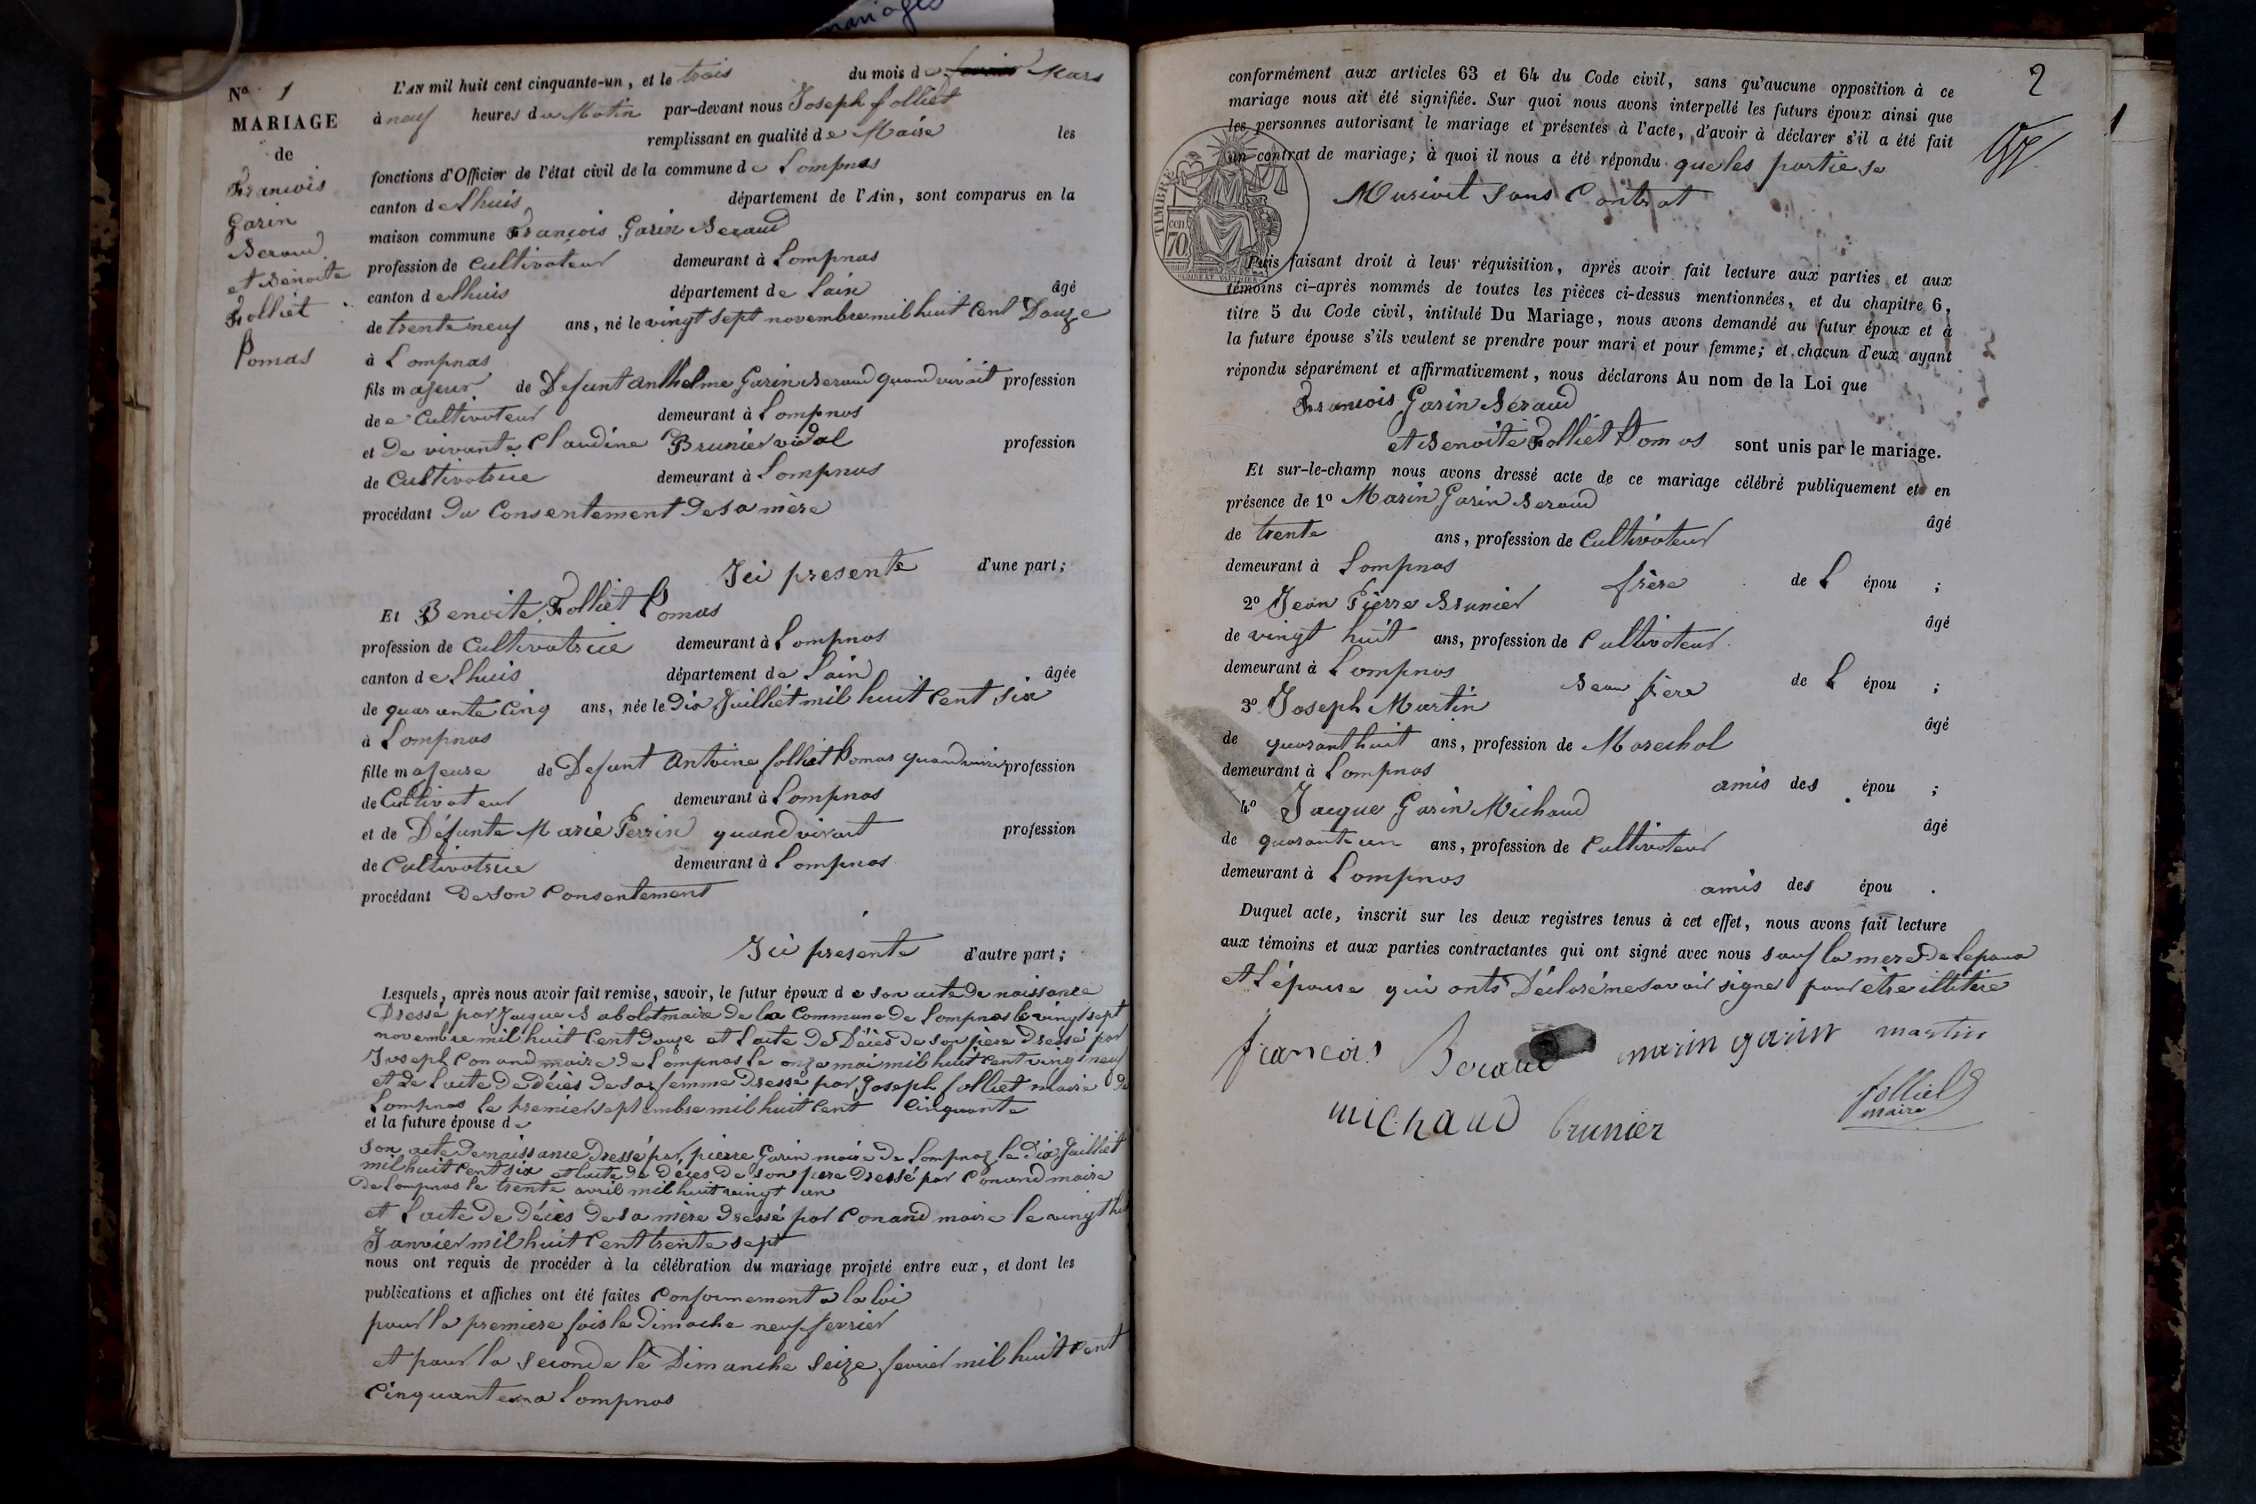 mariages
No. 1
MARIAGE
de
François
Garin
Beraud
et Benoite
Folliet
Pomas
L'AN mil huit cent cinquante-un, et le trois du mois de Mars
à neuf heures du Matin par-devant nous Joseph folliet
remplissant en qualité de Maire les
fonctions d'Officier de l'état civil de la commune de Lompnas
canton de Lhuis département de l'Ain, sont comparus en la
maison commune François Garin Beraud
profession de Cultivateur demeurant à Lompnas
canton de Lhuis département de Lain âgé
de trente neuf ans, né le vingt sept novembre mil huit Cent Douze
à Lompnas
fils majeur de Defunt Anthelme Garin Beraud quand vivoit profession
de Cultivateur demeurant à Lompnas
et de vivante Claudine Brunier vidal profession
de Cultivatrice demeurant à Lompnas
procédant du Consentement de sa mère
Ici presente d'une part;
Et Benoite Folliet Pomas
profession de Cultivatrice demeurant à Lompnas
canton de Lhuis département de Lain âgée
de quarante Cinq ans, née le Dix Juilliet mil huit Cent Six
à Lompnas
fille majeure de Defunt Antoine folliet Pomas quand vivoit profession
de Cultivateur demeurant à Lompnas
et de Défunte Marie Perrin quand vivoit profession
de Cultivatrice demeurant à Lompnas
procédant De son Consentement
Ici présente d'autre part;
Lesquels, après nous avoir fait remise, savoir, le futur époux de son acte de naissance
Dressé par Jacque Sabolot maire de la Commune de Lompnas le vingt sept
novembre mil huit Cent douze et Lacte de Décès de son père dressé par
Joseph Conand maire de Lompnas le onze mai mil huit cent vingt neuf
et de Lacte de décès de sa femme dressé par Joseph folliet maire de
Lompnas le premier septembre mil huit Cent Cinquante
et la future épouse de
son acte de naissance dressé par pierre Garin maire de Lompnaz le Dix Juilliet
mil huit Cent six et lacte de décès de son père dressé par Conand maire
de Lompnas le trente avril mil huit vingt un
et Lacte de décès de sa mère dressé par Conand maire le vingt
Janvier mil huit Cent trente sept
nous ont requis de procéder à la célébration du mariage projeté entre eux, et dont les
publications et affiches ont été faites Conformement a la loi
pour la premiere fois le Dimache neuf fevrier
et pour la seconde le Dimanche Seize fevrier mil huit Cent
Cinquante un a Lompnas
2
conformément aux articles 63 et 64 du Code civil, sans qu'aucune opposition à ce
mariage nous ait été signifiée. Sur quoi nous avons interpellé les futurs époux ainsi que
les personnes autorisant le mariage et présentes à l'acte, d'avoir à déclarer s'il a été fait
un contrat de mariage; à quoi il nous a été répondu que les partie se
Marioit sans Contrat
TIMBRE
70 cen
Puis faisant droit à leur réquisition, après avoir fait lecture aux parties et aux
témoins ci-après nommés de toutes les pièces ci-dessus mentionnées, et du chapitre 6,
titre 5 du Code civil, intitulé Du Mariage, nous avons demandé au futur époux et à
la future épouse s'ils veulent se prendre pour mari et pour femme; et chacun d'eux ayant
répondu séparément et affirmativement, nous déclarons Au nom de la Loi que
François Garin Beraud
et Benoite Folliet Pomas sont unis par le mariage.
Et sur-le-champ nous avons dressé acte de ce mariage célébré publiquement et en
présence de 1º Marin Garin Beraud âgé
de trente ans, profession de Cultivateur
demeurant à Lompnas frère de L épou ;
2º Jean Pierre Brunier âgé
de vingt huit ans, profession de Cultivateur
demeurant à Lompnas Beau frere de L épou ;
3º Joseph Martin âgé
de quarant huit ans, profession de Marechal
demeurant à Lompnas amis des épou ;
4º Jacque Garin Michaud âgé
de quarante un ans, profession de Cultivateur
demeurant à Lompnas amis des épou .
Duquel acte, inscrit sur les deux registres tenus à cet effet, nous avons fait lecture
aux témoins et aux parties contractantes qui ont signé avec nous sauf la mere de lepoux
et l'épouse qui onts Déclaré ne savoir signer pour être illitire
francois Beraud marin garin martin
michaud brunier folliet
maire
1